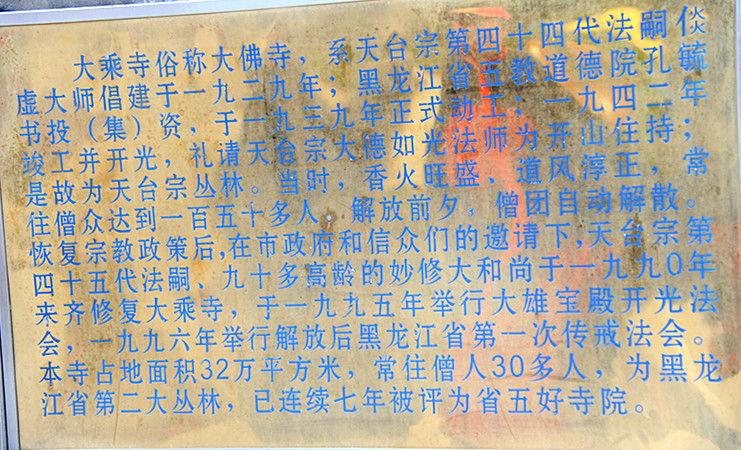 大乘寺俗称大佛寺，系天台宗第四十四代法嗣倓
虚大师倡建于一九二九年；黑龙江省五教道德院孔毓
书投（集）资，于一九三九年正式动工；一九四二年
竣工并开光，礼请天台宗大德如光法师为开山住持；
是故为天台宗丛林。当时，香火旺盛、道风淳正，常
住僧众达到一百五十多人。解放前夕，僧团自动解散。
恢复宗教政策后，在市政府和信众们的邀请下，天台宗第
四十五代法嗣、九十多高龄的妙修大和尚于一九九0年
来齐修复大乘寺，于一九九五年举行大雄宝殿开光法
会，一九九六年举行解放后黑龙江省第一次传戒法会。
本寺占地面积32万平方米，常住僧人30多人，为黑龙
江省第二大丛林，已连续七年被评为省五好寺院。